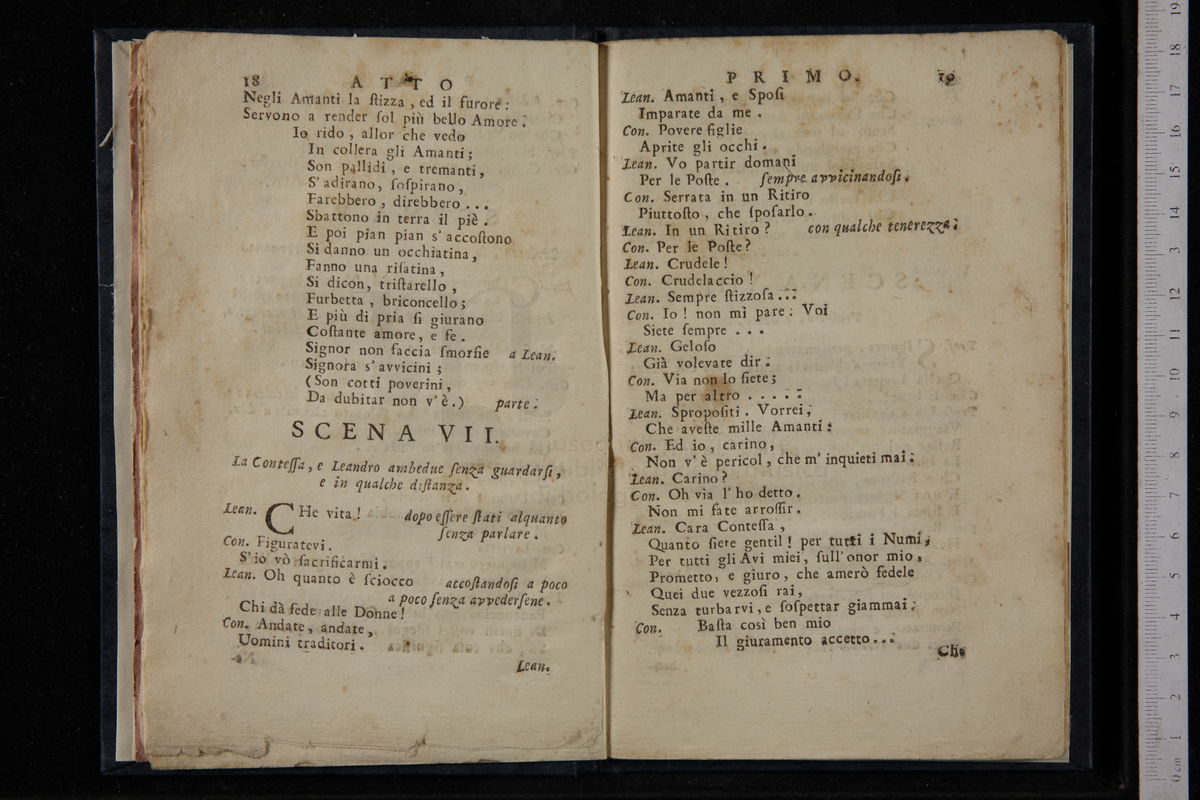 18 ATTO
Negli Amanti la ſtizza, ed il furore:
Servono a render ſol più bello Amore.
Io rido, allor che vedo
In collera gli Amanti;
Son pallidi, e tremanti,
S'adirano, ſoſpirano,
Farebbero, direbbero...
Sbattono in terra il piè.
E poi pian pian s'accoſtono
Si danno un occhiatina,
Fanno una riſatina,
Si dicon, triſtarello,
Furbetta, briconcello;
E più di pria ſi giurano
Coſtante amore, e fe.
Signor non faccia ſmorfie a Lean.
Signora s'avvicini;
(Son cotti poverini,
Da dubitar non v'è.) parte.
SCENA VII.
La Conteſſa, e Leandro ambedue ſenza guardarſi,
e in qualche diſtanza.
Lean. CHe vita! dopo eſſere ſtati alquanto
ſenza parlare.
Con. Figuratevi.
S'io vò ſacrificarmi.
Lean. Oh quanto è ſciocco accoſtandoſi a poco
a poco ſenza avvederſene.
Chi dà fede alle Donne!
Con. Andate, andate,
Uomini traditori.
Lean.
PRIMO. 19
Lean. Amanti, e Spoſi
Imparate da me.
Con. Povere figlie
Aprite gli occhi.
Lean. Vo partir domani
Per le Poſte. ſempre avvicinandoſi.
Con. Serrata in un Ritiro
Piuttoſto, che ſpoſarlo.
Lean. In un Ritiro? con qualche tenerezza.
Con. Per le Poſte?
Lean. Crudele!
Con. Crudelaccio!
Lean. Sempre ſtizzoſa...
Con. Io! non mi pare: Voi
Siete ſempre...
Lean. Geloſo
Già volevate dir.
Con. Via non lo ſiete;
Ma per altro.....
Lean. Spropoſiti. Vorrei,
Che aveſte mille Amanti.
Con. Ed io, carino,
Non v'è pericol, che m'inquieti mai.
Lean. Carino?
Con. Oh via l'ho detto.
Non mi fate arroſſir.
Lean. Cara Conteſſa,
Quanto ſiete gentil! per tutti i Numi,
Per tutti gli Avi miei, ſull'onor mio,
Prometto, e giuro, che amerò fedele
Quei due vezzoſi rai,
Senza turbarvi, e ſoſpettar giammai.
Con. Baſta così ben mio
Il giuramento accetto...
Che